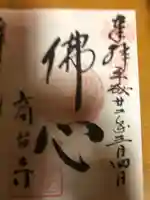 奉拝 平成廿二年三月四日
佛心
高台寺